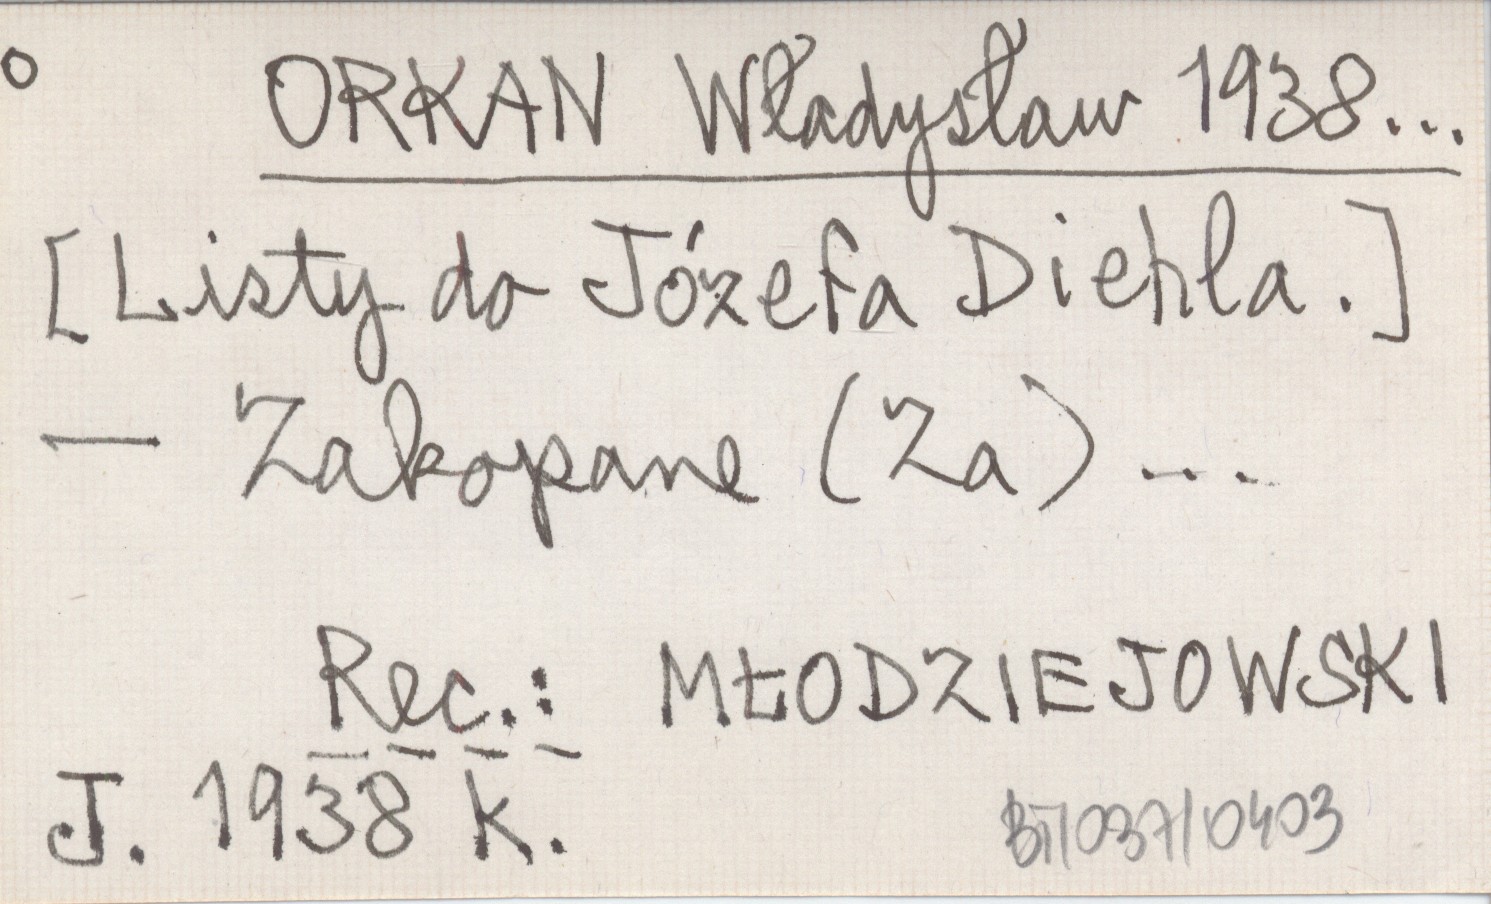 o ORKAN Władysław 1938...
[Listy do Józefa Diehla.]
— Zakopane (Za) ...
Rec.: MŁODZIEJOWSKI
J. 1938 k.
BT/037/0403